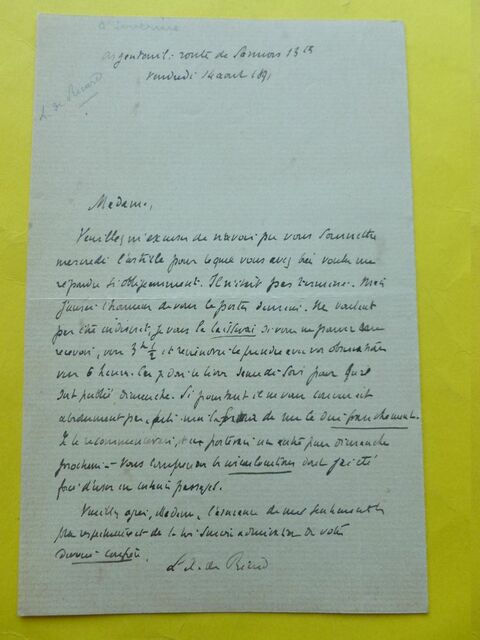 à Séverine
Argenteuil - route de Sannois 13
Vendredi 14 août 1891
L. de Ricard
Madame,
Veuillez m'excuser de n'avoir pu vous soumettre
mercredi l'article pour lequel vous avez bien voulu me
répondre si obligeamment. Il n'était pas terminé. Mais
j'aurai l'honneur de vous le porter demain. Ne voulant
pas être indiscret, je vous le laisserai si vous ne pouvez me
recevoir, vers 3 h ½ et reviendrai le prendre avec vos observations
vers 6 heures. Car je dois le livrer samedi soir pour qu'il
soit publié dimanche. Si pourtant il ne vous convenait
absolument pas, de me le dire franchement.
Je le recommencerai, et en porterai un autre pour dimanche
prochain - Vous comprenez les dont j'ai été
forcé d'user en certains passages.
Veuillez agréer, Madame, l'assurance de mes sentiments
respectueux et de la sincère admiration de votre
dévoué confrère.
L. X. de Ricard